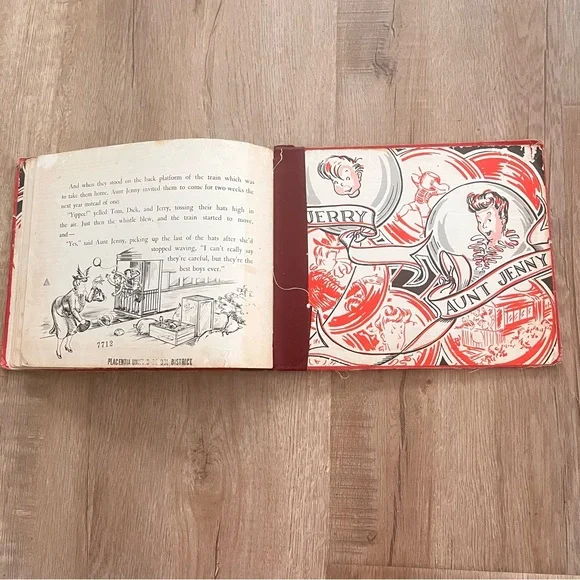 And when they stood on the back platform of the train which was
to take them home, Aunt Jenny invited them to come for two weeks the
next year instead of one.
"Yippee!" yelled Tom, Dick, and Jerry, tossing their hats high in
the air. Just then the whistle blew, and the train started to move,
and—
"Yes," said Aunt Jenny, picking up the last of the hats after she'd
stopped waving, "I can't really say
they're careful, but they're the
best boys ever."
7712
PLACENTIA DISTRICT
JERRY
AUNT JENNY